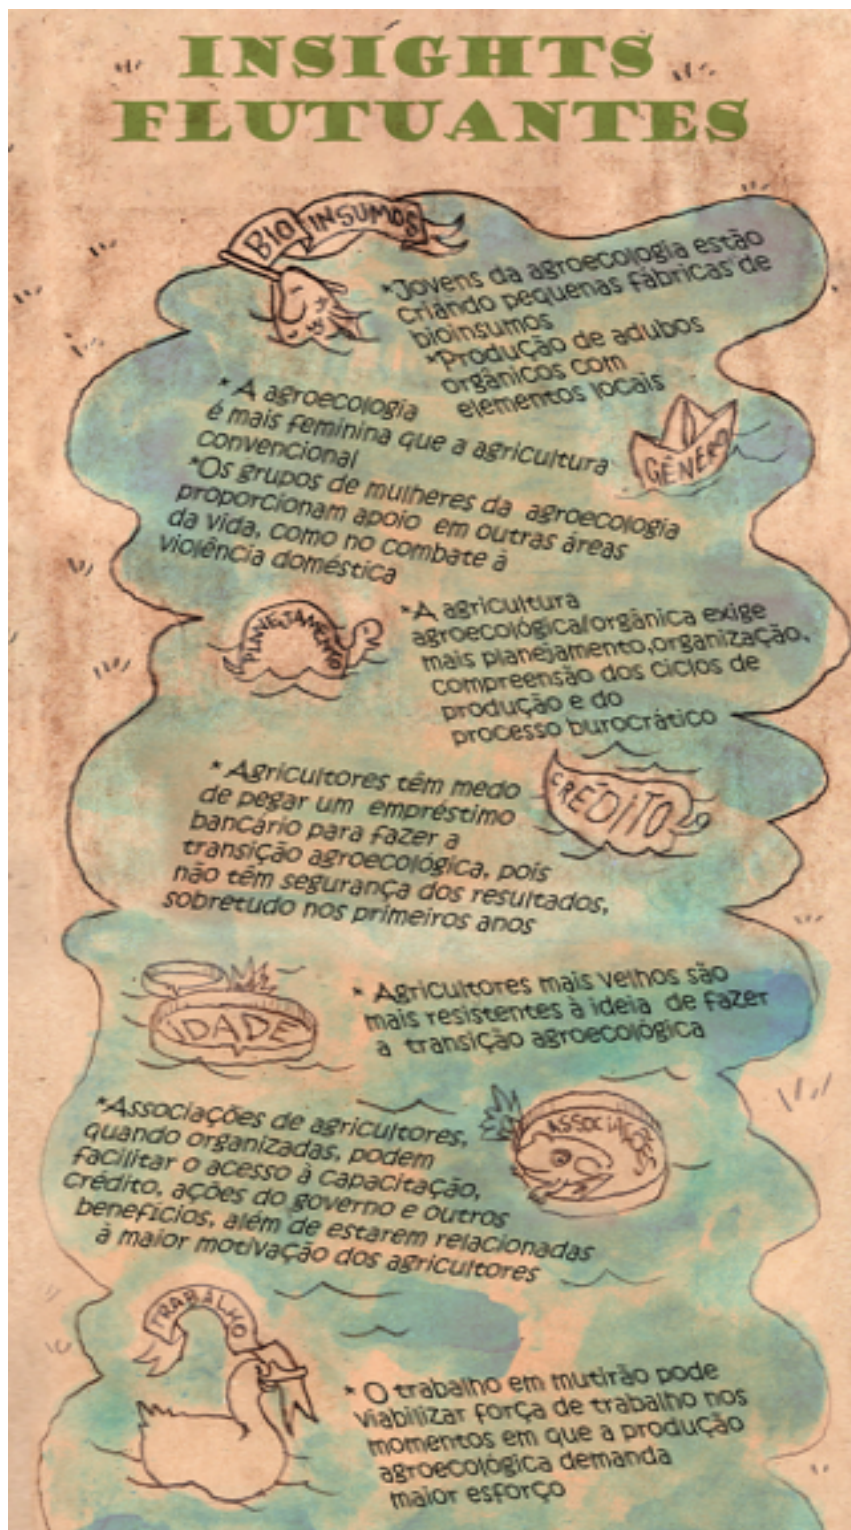 INSIGHTS
FLUTUANTES
BIO INSUMOS
*Jovens da agroecologia estão
criando pequenas fábricas de
bioinsumos
*Produção de adubos
orgânicos com
elementos locais
* A agroecologia
é mais feminina que a agricultura
convencional
*Os grupos de mulheres da agroecologia
proporcionam apoio em outras áreas
da vida, como no combate à
violência doméstica
GÊNERO
PLANEJAMENTO
*A agricultura
agroecológica/orgânica exige
mais planejamento,organização,
compreensão dos ciclos de
produção e do
processo burocrático
* Agricultores têm medo
de pegar um empréstimo
bancário para fazer a
transição agroecológica, pois
não têm segurança dos resultados,
sobretudo nos primeiros anos
CRÉDITO
IDADE
* Agricultores mais velhos são
mais resistentes à ideia de fazer
a transição agroecológica
*Associações de agricultores,
quando organizadas, podem
facilitar o acesso à capacitação,
crédito, ações do governo e outros
benefícios, além de estarem relacionadas
à maior motivação dos agricultores
ASSOCIAÇÕES
TRABALHO
* O trabalho em mutirão pode
viabilizar força de trabalho nos
momentos em que a produção
agroecológica demanda
maior esforço